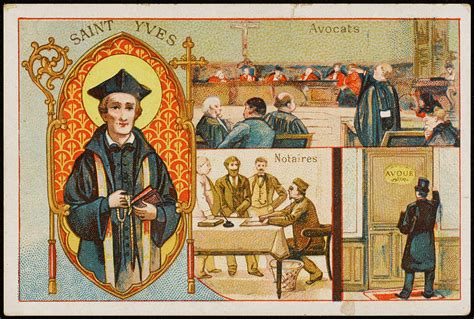 SAINT YVES
Avocats
Notaires
AVOUÉ